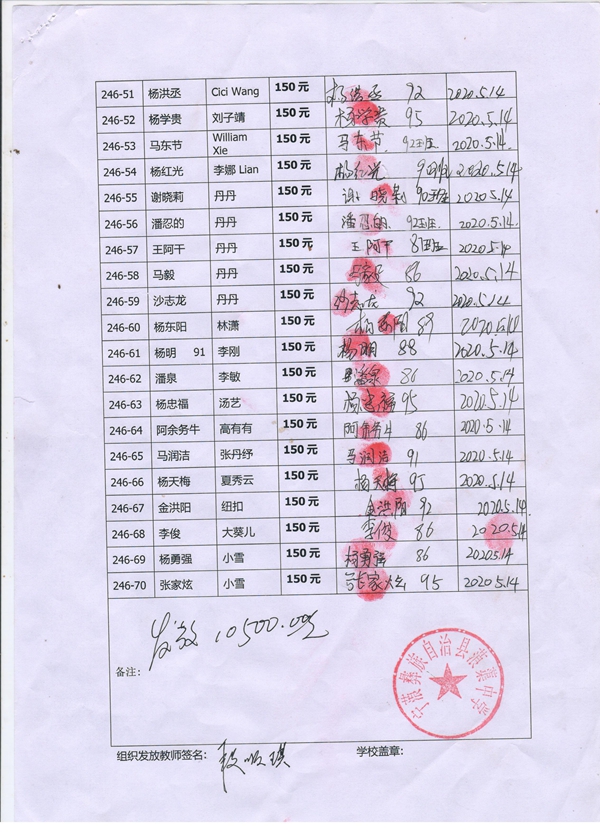 246-51 杨洪丞 Cici Wang 150元 杨洪丞 92 2020.5.14
246-52 杨学贵 刘子靖 150元 杨学贵 95 2020.5.14
246-53 马东节 William Xie 150元 马东节 92班 2020.5.14
246-54 杨红光 李娜 Lian 150元 杨红光 2020.5.14
246-55 谢晓莉 丹丹 150元 谢晓莉 90班 2020.5.14
246-56 潘忍的 丹丹 150元 潘忍的 92班 2020.5.14
246-57 王阿干 丹丹 150元 王阿干 87班 2020.5.14
246-58 马毅 丹丹 150元 86 2020.5.14
246-59 沙志龙 丹丹 150元 沙志龙 92 2020.5.14
246-60 杨东阳 林潇 150元 杨东阳 89 2020.5.14
246-61 杨明 91 李刚 150元 杨明 88 2020.5.14
246-62 潘泉 李敏 150元 潘泉 86 2020.5.14
246-63 杨忠福 汤艺 150元 杨忠福 95 2020.5.14
246-64 阿余务牛 高有有 150元 阿余务牛 86 2020.5.14
246-65 马润洁 张丹纾 150元 马润洁 91 2020.5.14
246-66 杨天梅 夏秀云 150元 杨天梅 95 2020.5.14
246-67 金洪阳 纽扣 150元 金洪阳 92 2020.5.14
246-68 李俊 大葵儿 150元 李俊 86 2020.5.14
246-69 杨勇强 小雪 150元 杨勇强 86 2020.5.14
246-70 张家炫 小雪 150元 张家炫 95 2020.5.14
发放10500.00元
备注:
宁蒗彝族自治县蒗蕖中学
组织发放教师签名: 学校盖章: